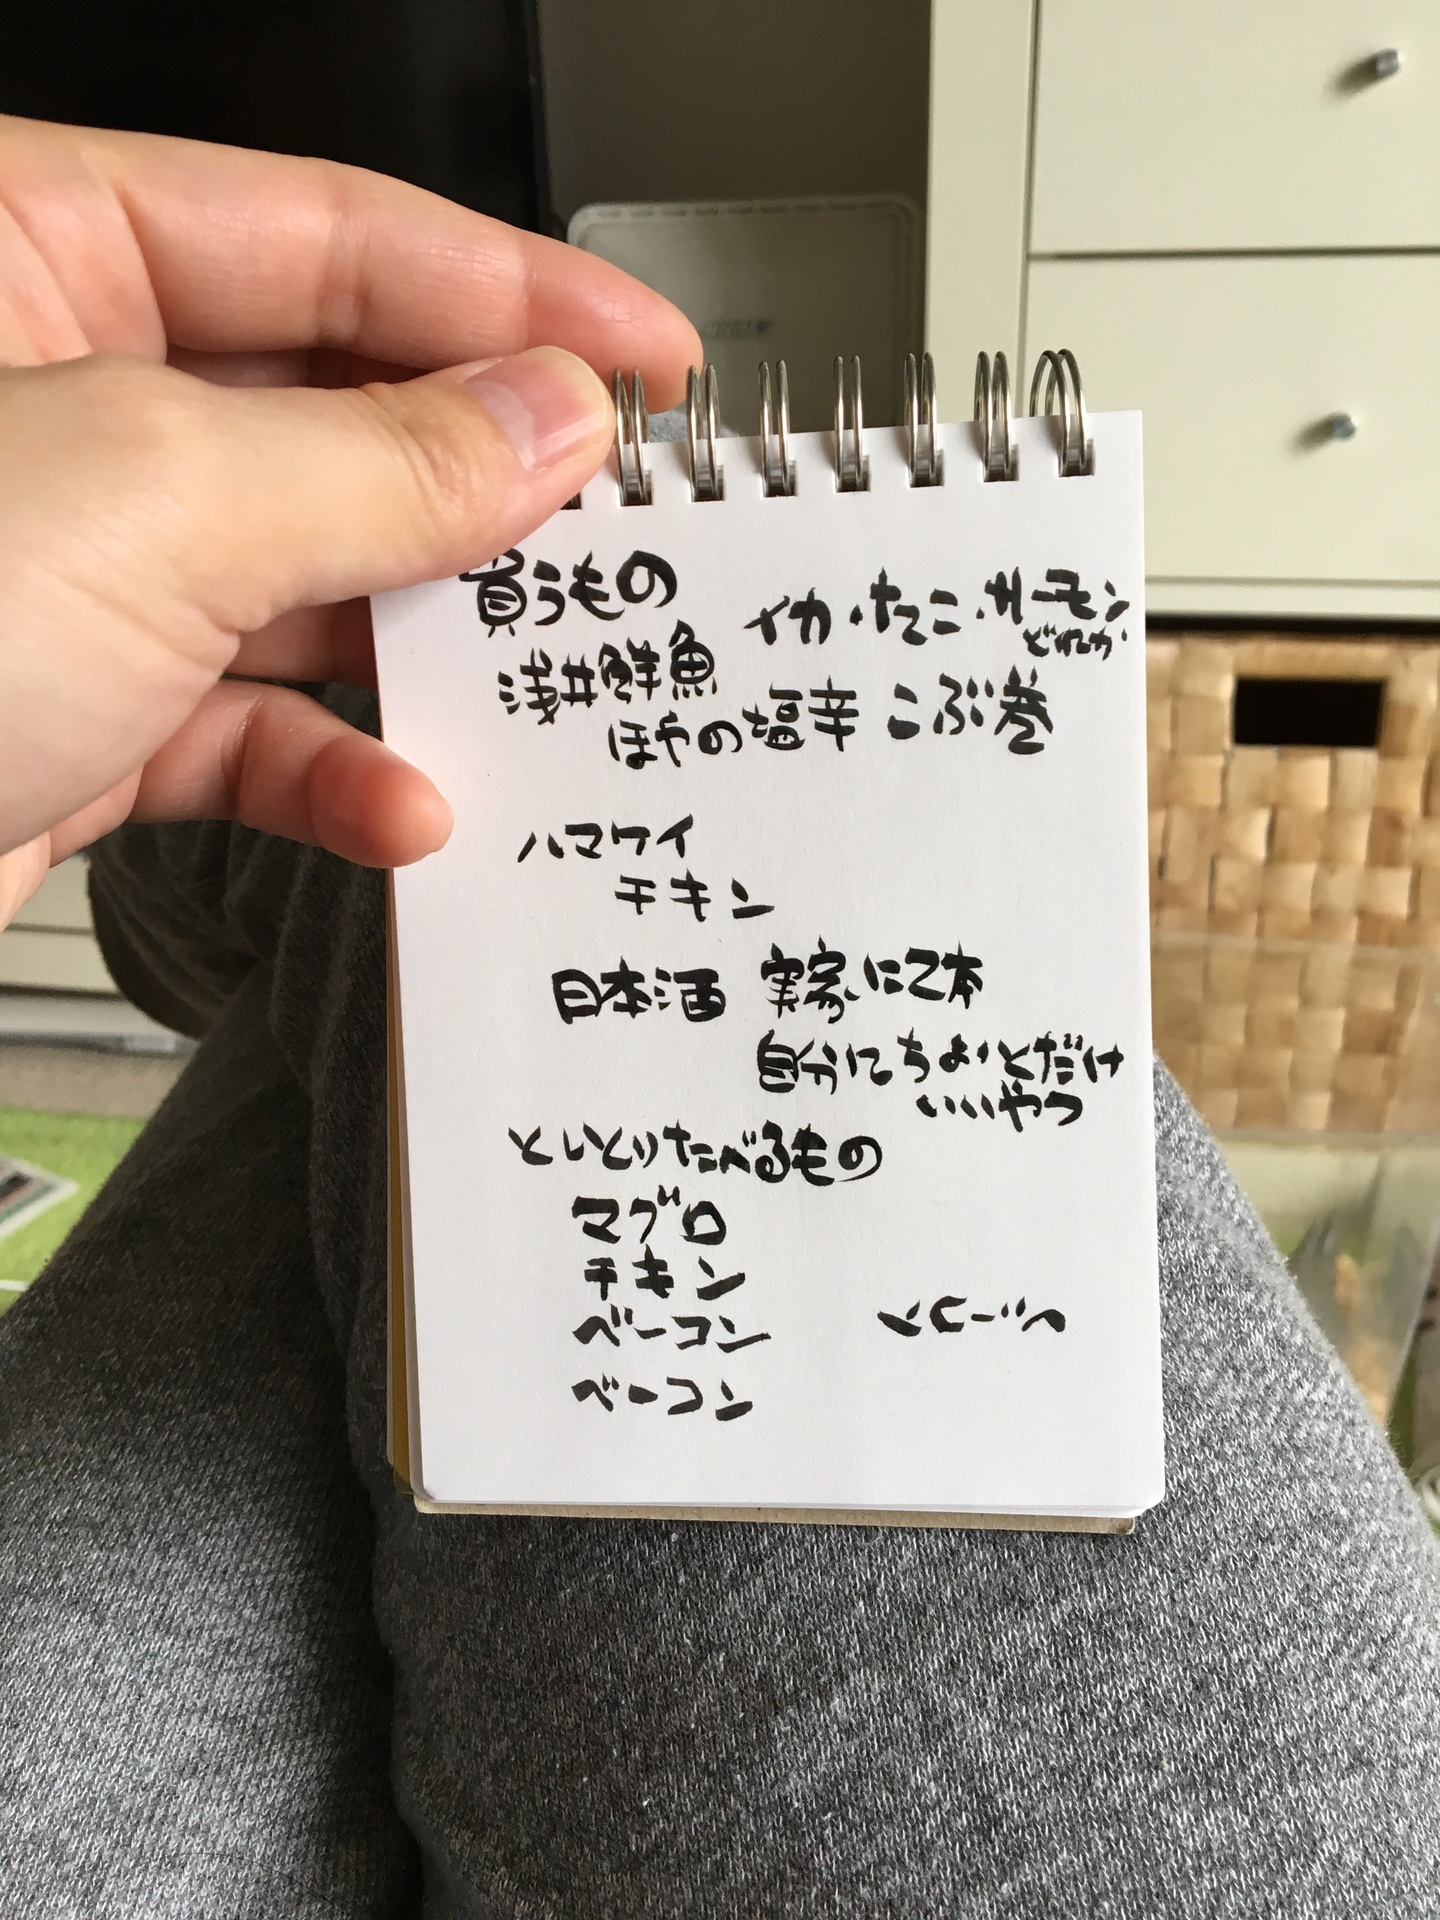 買うもの
イカ・たこ・サーモン
どれか
浅井鮮魚
ほやの塩辛 こぶ巻
ハマケイ
チキン
日本酒 実家に2本
自分にちょっとだけ
いいやつ
といとりたべるもの
マグロ
チキン
ベーコン
ベーコン